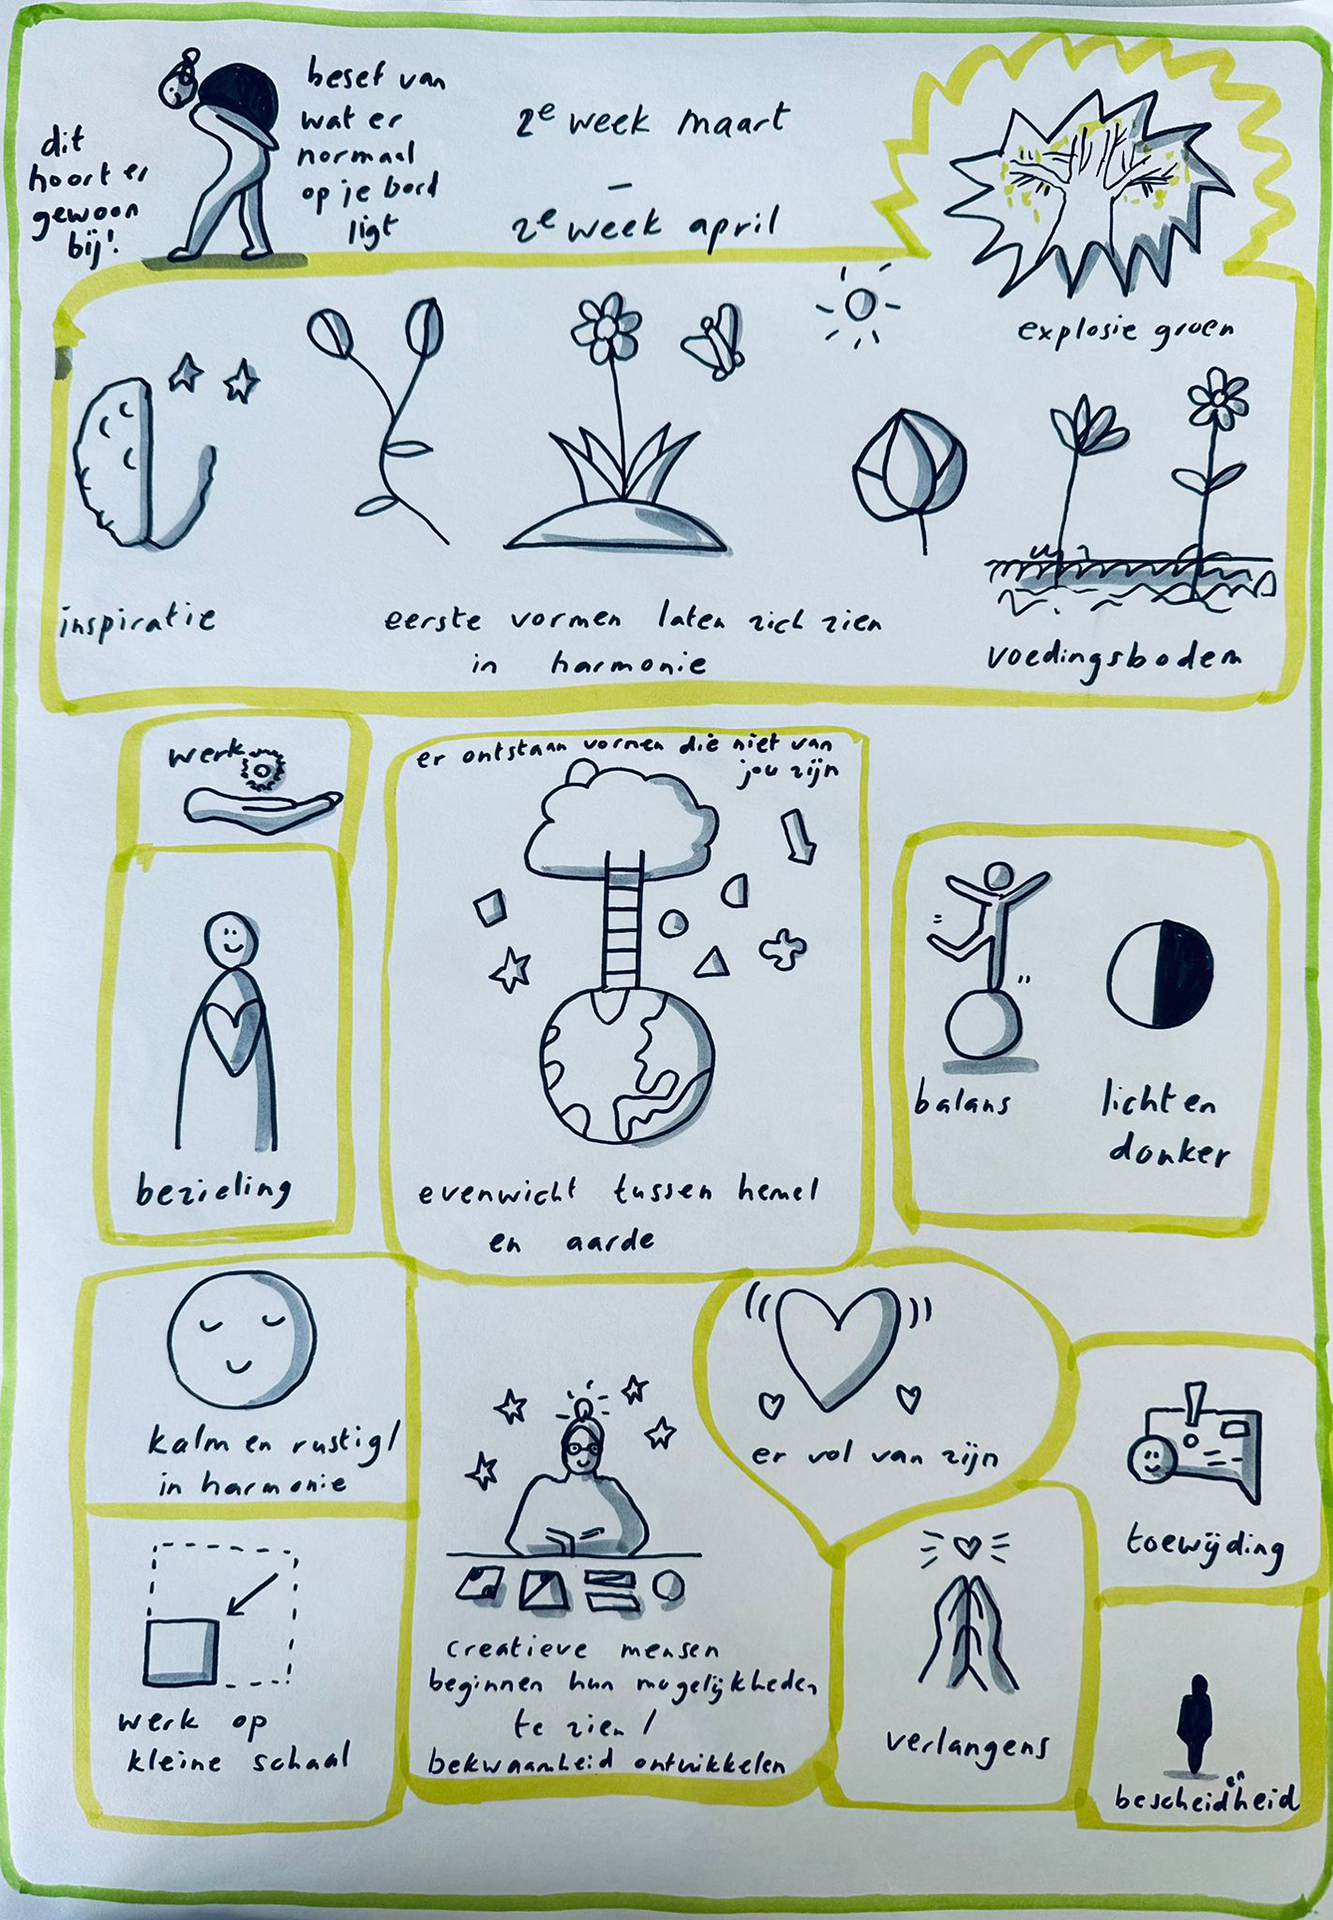 dit
hoort er
gewoon
bij!
besef van
wat er
normaal
op je bord
ligt
2e week maart
-
2e week april
explosie groen
inspiratie
eerste vormen laten zich zien
in harmonie
voedingsbodem
werk
er ontstaan vormen die niet van
jou zijn
bezieling
evenwicht tussen hemel
en aarde
balans
licht en
donker
kalm en rustig/
in harmonie
er vol van zijn
toewijding
werk op
kleine schaal
creatieve mensen
beginnen hun mogelijkheden
te zien /
bekwaamheid ontwikkelen
verlangens
bescheidenheid